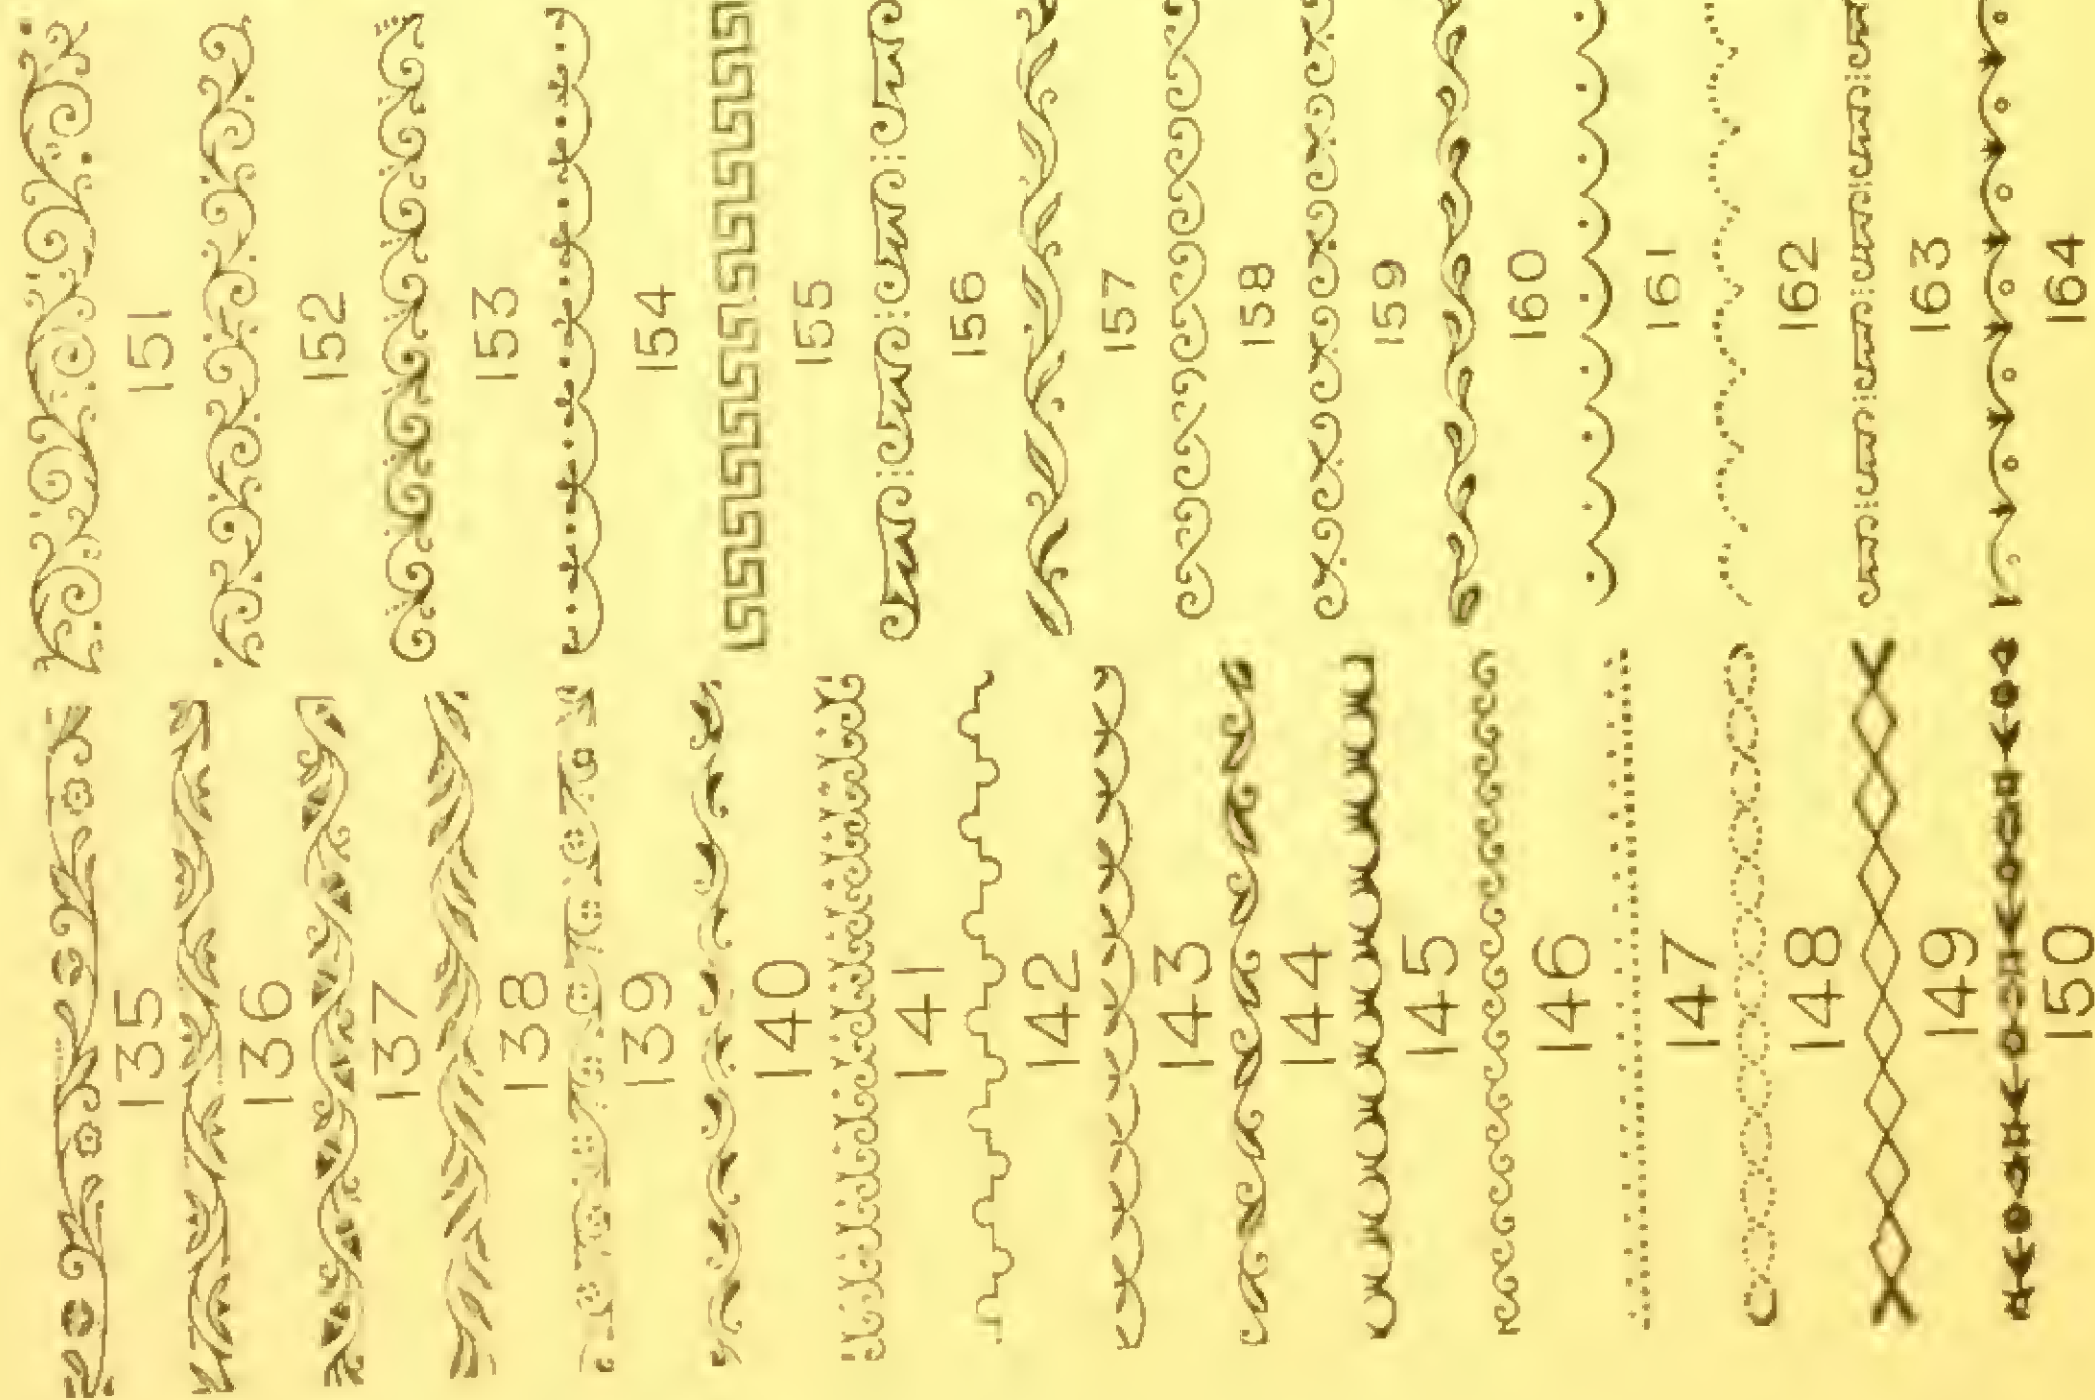 135
136
137
138
139
140
141
142
143
144
145
146
147
148
149
150
151
152
153
154
155
156
157
158
159
160
161
162
163
164